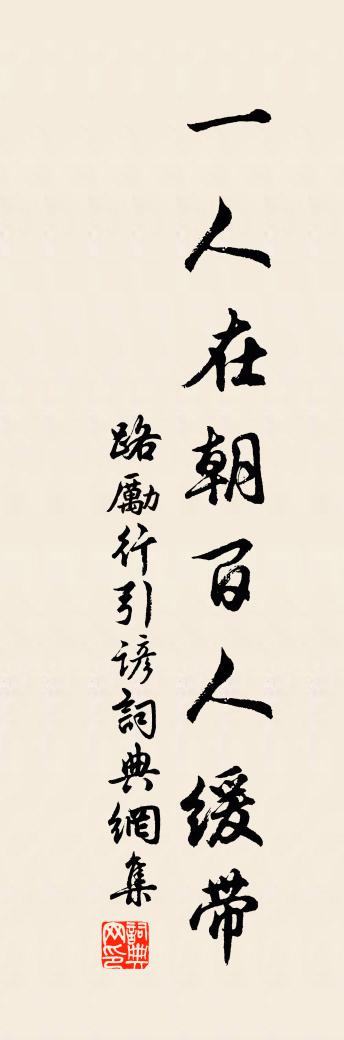 一人在朝百人緩帶
路勵行引諺詞典網集
詞典网印